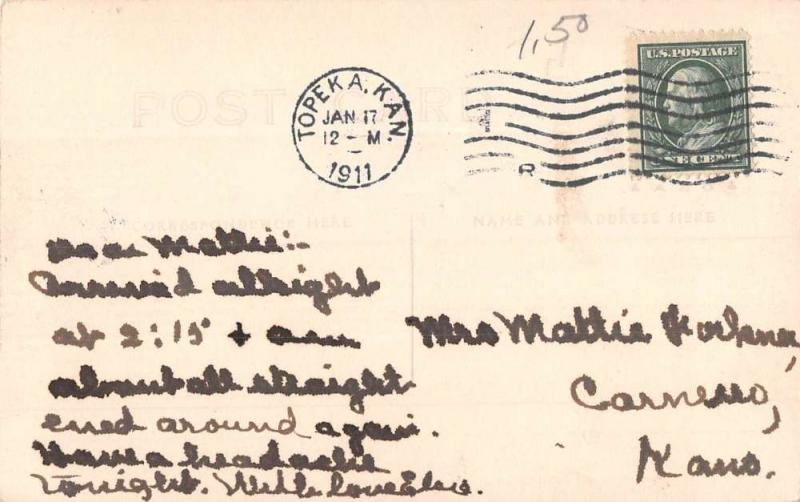 1.50
U.S. POSTAGE
POST CARD
TOPEKA, KAN.
JAN 17
12 - M
1911
R
ONE CENT
CORRESPONDENCE HERE
NAME AND ADDRESS HERE
Dear Mattie:-
Arrived allright
at 2:15 + am
almost all straight
ened around again.
Have a headache
tonight. With love
Mrs Mattie
Carneiro,
Kans.